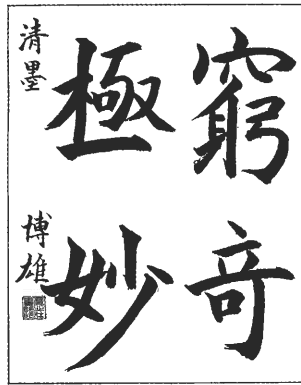 窮奇
極妙
清墨
博雄